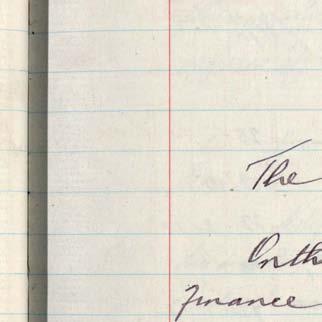 The
Onth
Finance